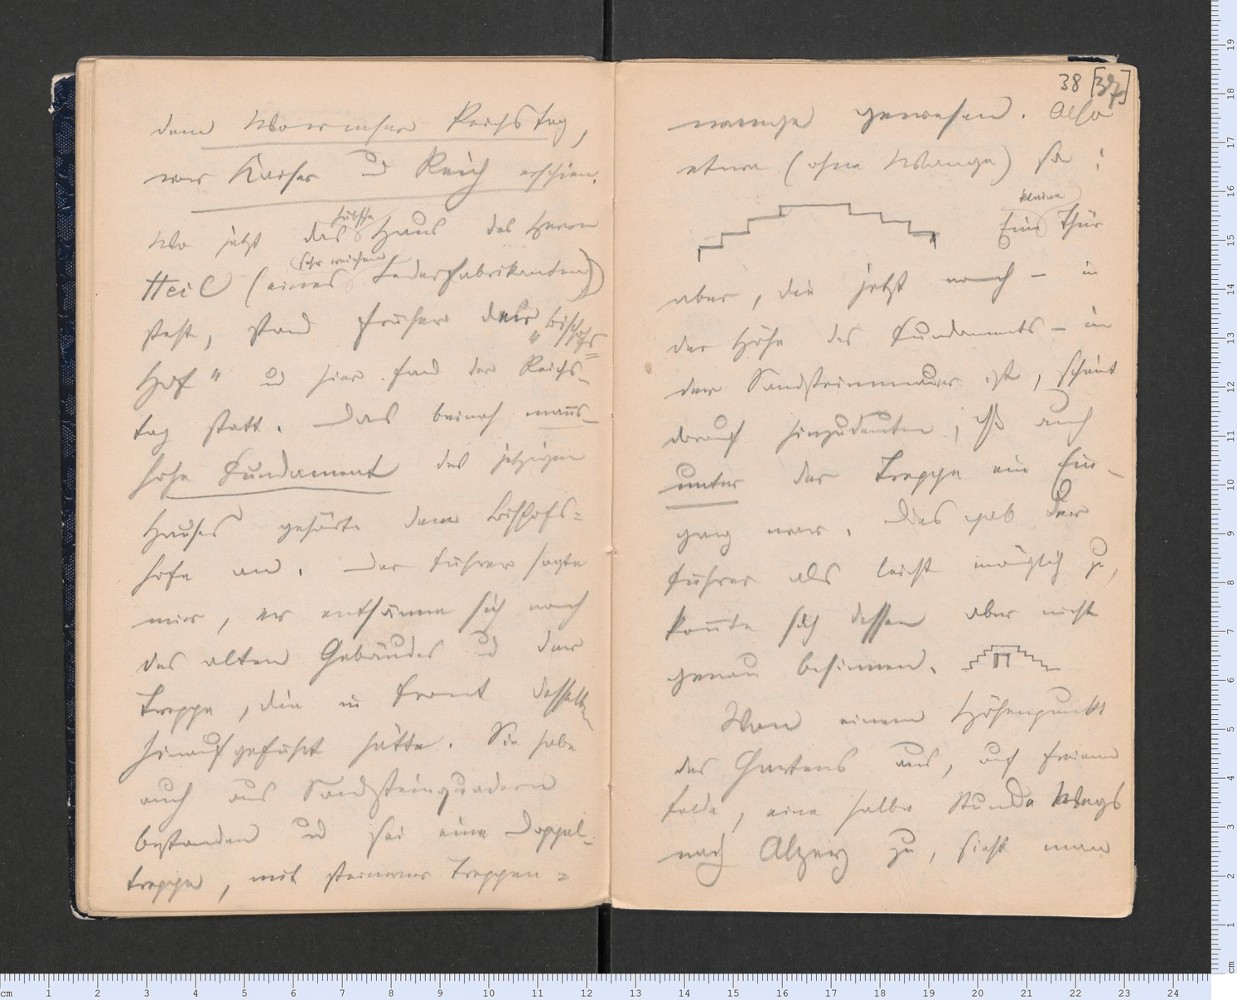 dem Wormser Reichstag,
vor Kaiser und Reich erschien.
Wo jetzt das hübsche Haus des Herrn
Heil (eines sehr reichen Lederfabrikanten)
steht, stand früher der „Bischofs=
hof“ und hier fand der Reichs-
tag statt. Das beinah manns-
hohe Fundament des jetzigen
Hauses gehörte dem Bischofs=
hofe an. Der Führer sagte
mir, er entsänne sich noch
des alten Gebäudes und der
Treppe, die in Front desselben
hinaufgeführt hätte. Sie habe
auch aus Sandsteinquadern
bestanden und sei eine Doppel-
treppe, mit steinerner Treppen=
38 [37]
wange gewesen. Also
etwa (ohne Wange) so:
Eine kleine Thür
aber, die jetzt noch – in
der Höhe des Fundaments – in
der Sandsteinmauer ist, scheint
darauf hinzudeuten, daß auch
unter der Treppe ein Ein-
gang war. Dies gab der
Führer als leicht möglich zu,
konnte sich dessen aber nicht
genau besinnen.
Von einem Höhenpunkt
des Gartens aus, auf freiem
Felde, eine halbe Stunde Wegs
nach Alzey zu, sieht man